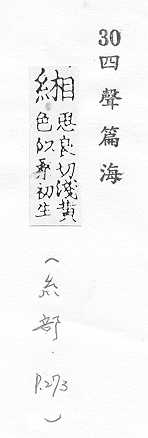 30四聲篇海
緗思良切淺黃
色似桑初生
(糸部．P.273)